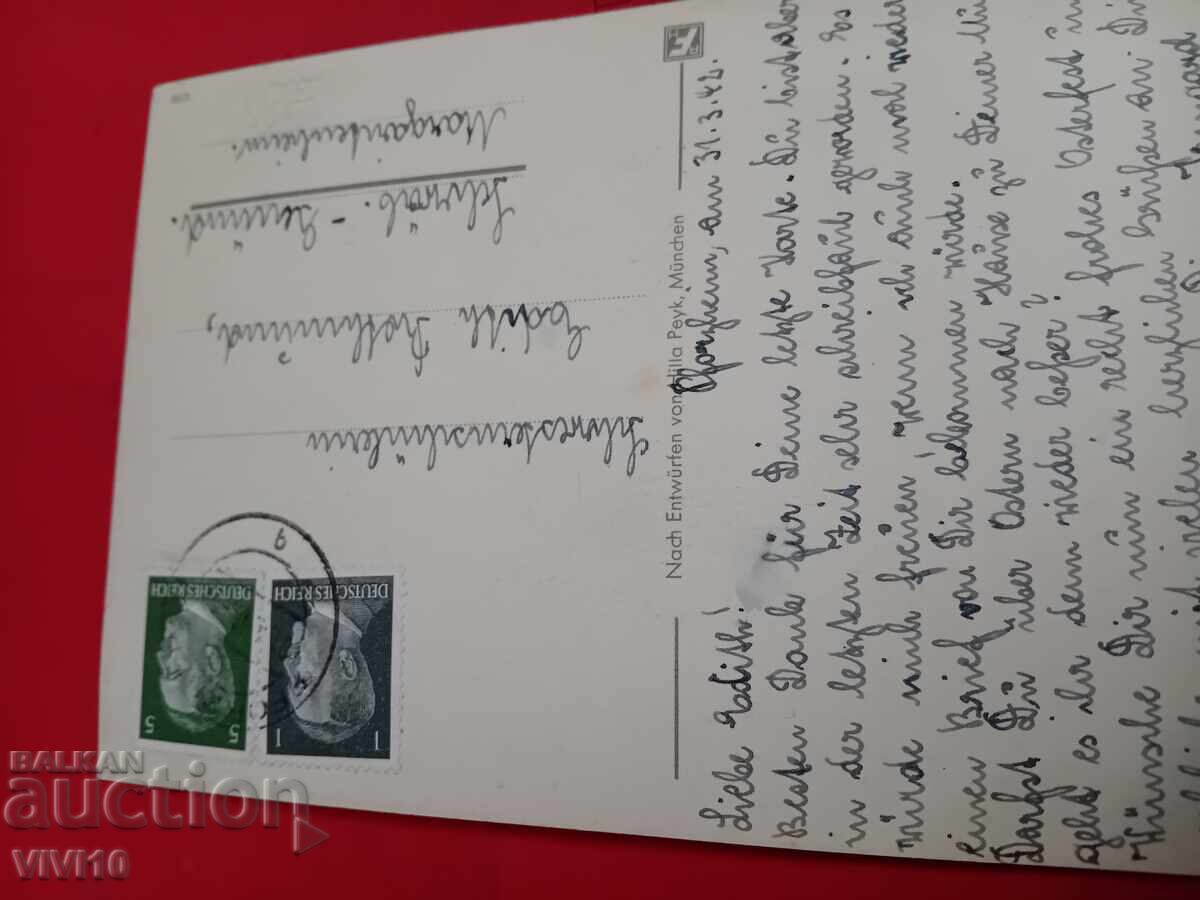 Pforzheim, am 31.3.42.
Liebe Edith!
Besten Dank für Deine letzte Karte. Du bist aber
in der letzten Zeit sehr schreibfaul geworden. Es
würde mich freuen, wenn ich auch mal wieder
einen Brief von Dir bekommen würde.
Darfst Du über Ostern nach Hause zu Deiner
geht es ihr denn wieder besser?
Wünsche Dir nun ein recht frohes Osterfest
vielen herzlichen Grüßen an
Nach Entwürfen von Hilla Peyk, München
Schwesternschülerin
Edith
Schwäb. - Gmünd.
Margaritenheim.
DEUTSCHES REICH
5 5
DEUTSCHES REICH
1 1
9
BALKAN
auction
VIVI10